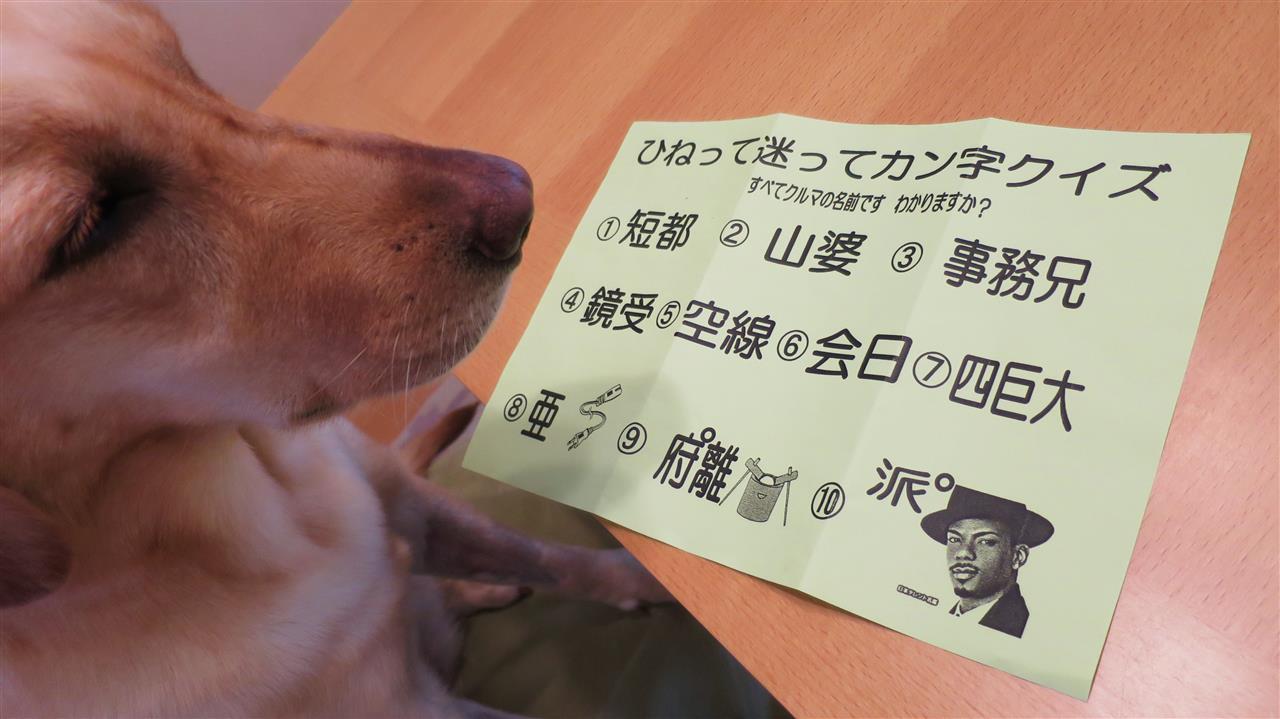 ひねって迷ってカン字クイズ
すべてクルマの名前です わかりますか?
①短都 ②山婆 ③事務兄
④鏡受 ⑤空線 ⑥会日 ⑦四巨大
⑧亜 ⑨府゜離 ⑩派゜